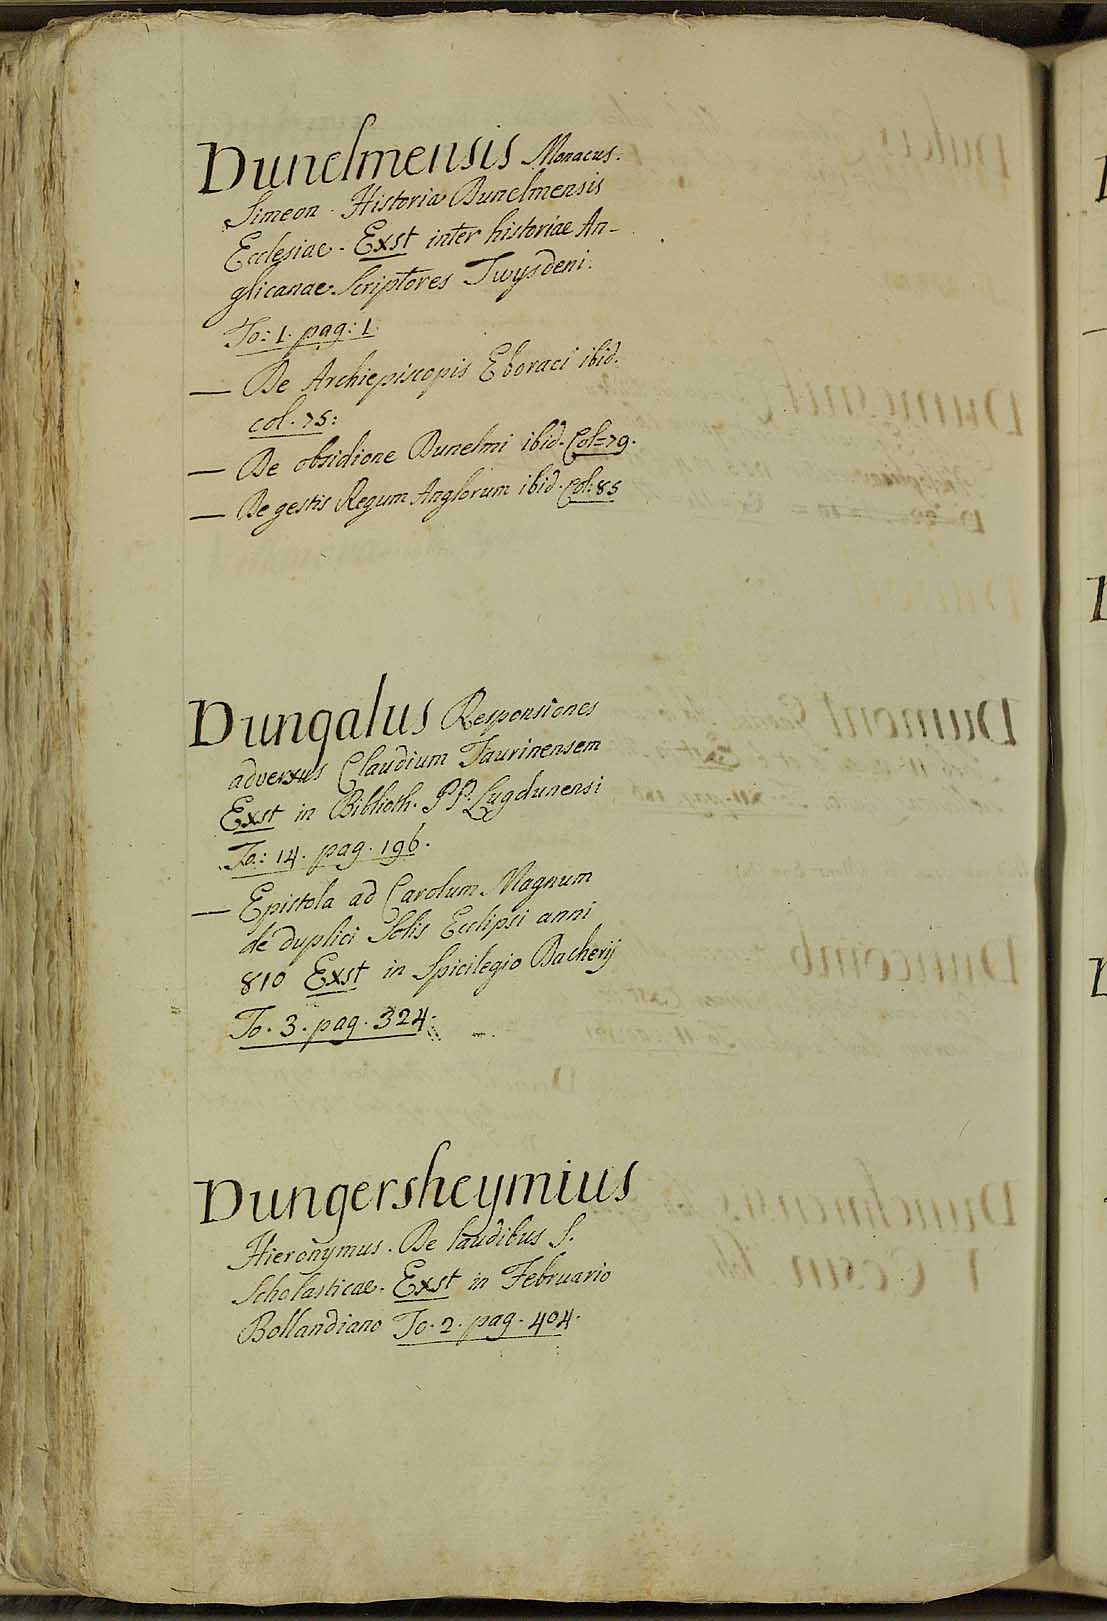 Dunelmensis Monacus.
Simeon. Historia Dunelmensis
Ecclesiae. Exst inter historiae An-
glicanae Scriptores Twysdeni.
To: 1. pag: 1.
— De Archiepiscopis Eboraci ibid.
col. 75:
— De obsidione Dunelmi ibid. Col=79.
— De gestis Regum Anglorum ibid. Col: 85
Dungalus Responsiones
adversus Claudium Taurinensem
Exst in Biblioth. PP. Lugdunensi
To: 14. pag. 196.
— Epistola ad Carolum Magnum
de duplici Solis Ecclipsi anni
810 Exst in Spicilegio Dacherij
To. 3. pag. 324.
Dungersheymius
Hieronymus. De laudibus S.
Scholasticae. Exst in Februario
Bollandiano To. 2. pag. 404.